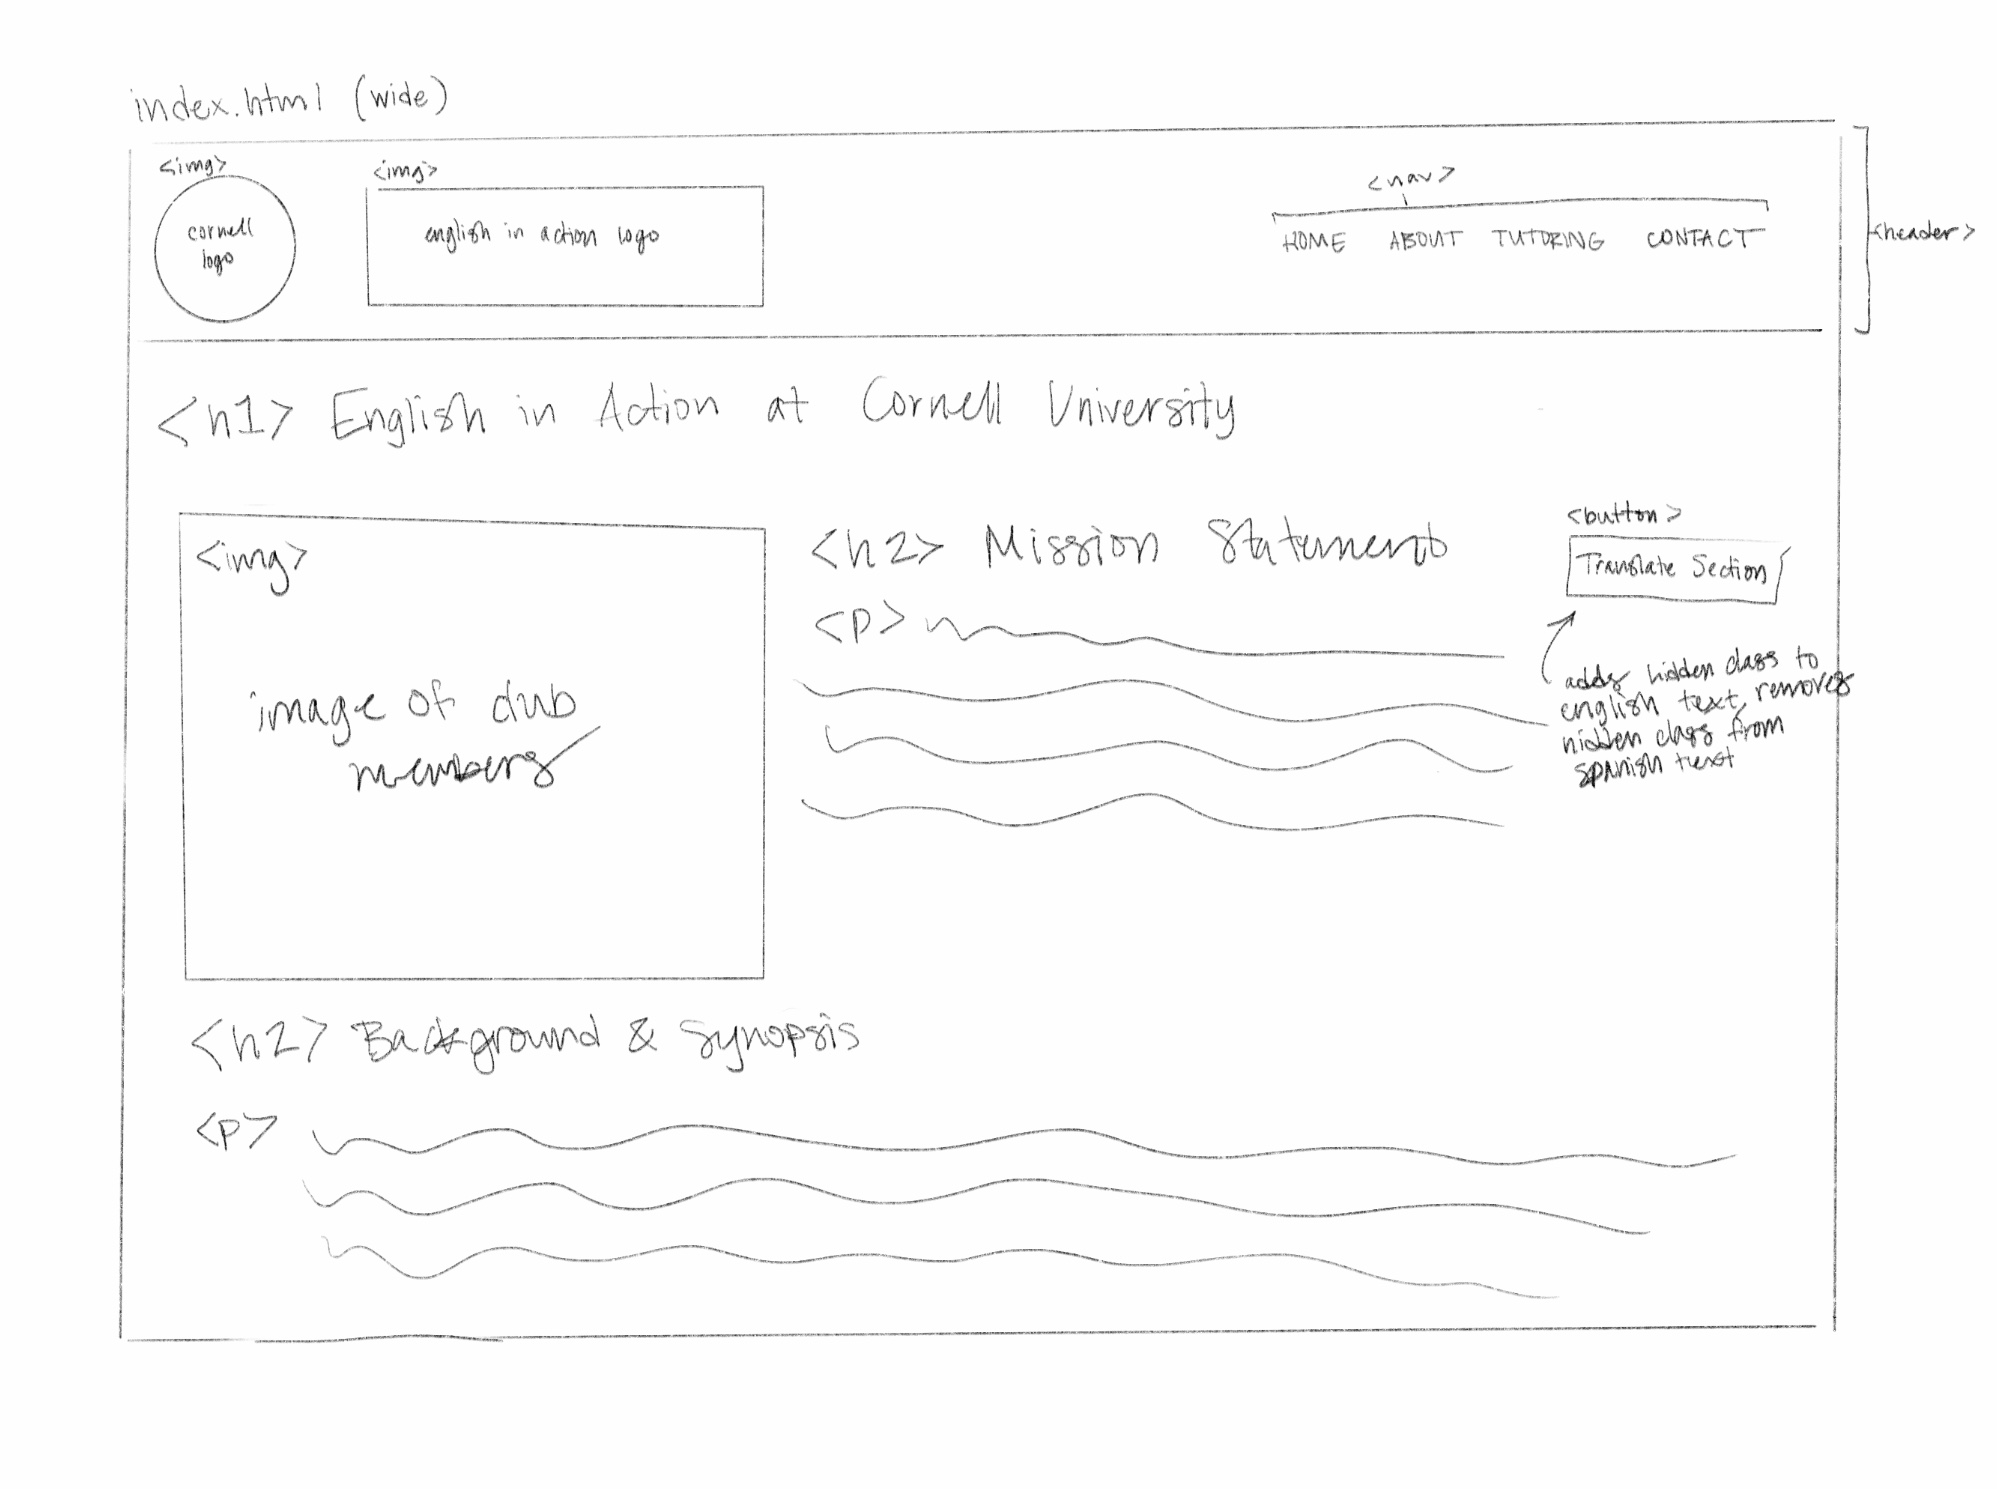 index.html (wide)
<img>
cornell
logo
<img>
english in action logo
<nav>
HOME ABOUT TUTORING CONTACT
<header>
<h1> English in Action at Cornell University
<img>
image of club
members
<h2> Mission Statement
<p>
<button>
Translate Section
adds hidden class to
english text, removes
hidden class from
spanish text
<h2> Background & Synopsis
<p>